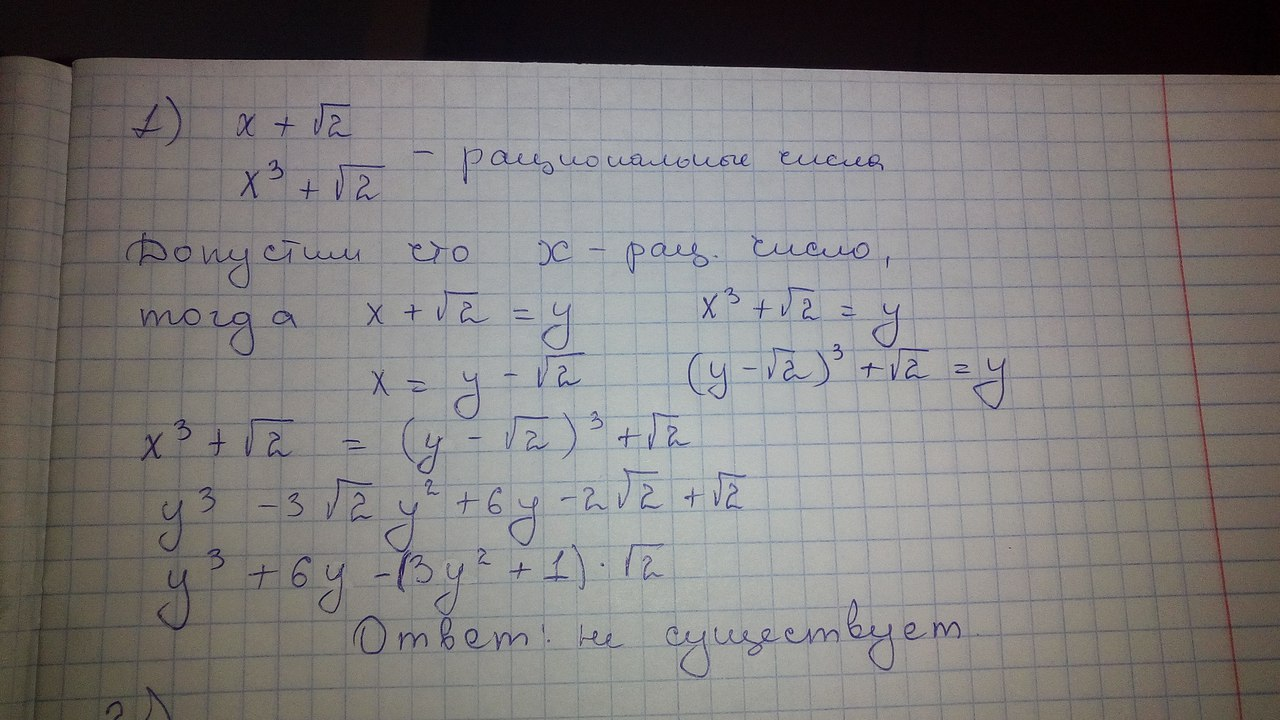 1) x + √2
x³ + √2 - рациональные числа
Допустим что x - рац. число,
тогда x + √2 = y x³ + √2 = y
x = y - √2 (y - √2)³ + √2 = y
x³ + √2 = (y - √2)³ + √2
y³ - 3√2 y² + 6y - 2√2 + √2
y³ + 6y - (3y² + 1) · √2
Ответ: не существует.
2)